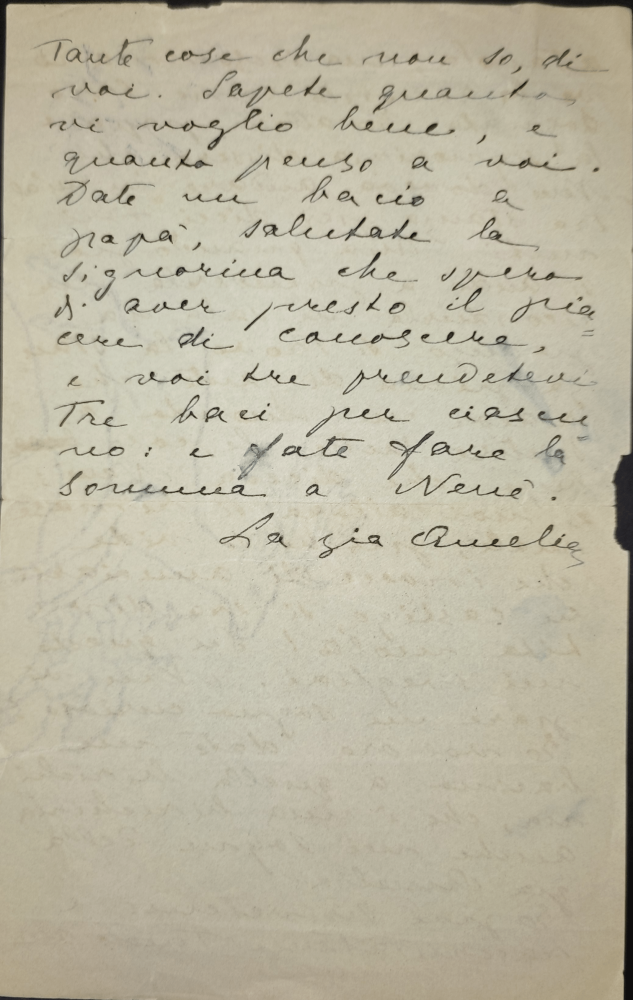 Tante cose che non so, di
voi. Sapete quanto
vi voglio bene, e
quanto penso a voi.
Date un bacio a
papà, salutate la
signorina che spero
di aver presto il pia
cere di conoscere,
e voi tre prendetevi
Tre baci per ciascu
no: e fate fare la
somma a Nenè.
La zia Amelia